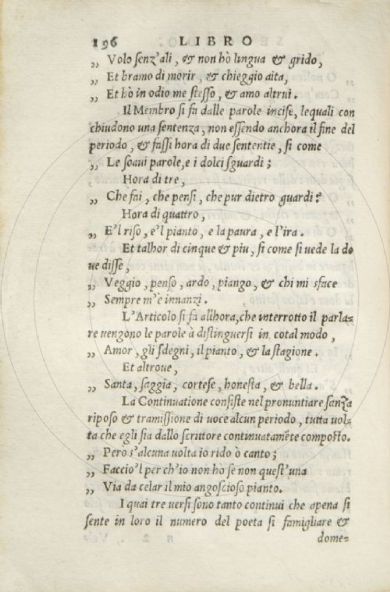 196 LIBRO
„ Volo senz'ali, & non hò lingua & grido,
„ Et bramo di morir, & chieggio aita,
„ Et hò in odio me stesso, & amo altrui.
Il Membro si fa dalle parole incise, lequali con
chiudono una sentenza, non essendo anchora il fine del
periodo, & fassi hora di due sententie, si come
„ Le soaui parole, e i dolci sguardi;
Hora di tre,
„ Che fai, che pensi, che pur dietro guardi?
Hora di quattro,
„ E'l riso, e'l pianto, e la paura, e l'ira.
Et talhor di cinque & piu, si come si uede la do
ue disse,
„ Veggio, penso, ardo, piango, & chi mi sface
„ Sempre m'è innanzi.
L'Articolo si fa allhora, che interrotto il parla-
re uengono le parole à distinguersi in cotal modo,
„ Amor, gli sdegni, il pianto, & la stagione.
Et altroue,
„ Santa, saggia, cortese, honesta, & bella.
La Continuatione consiste nel pronuntiare sanza
riposo & tramissione di uoce alcun periodo, tutta uol-
ta che egli sia dallo scrittore continuatamēte composto.
„ Però s'alcuna uolta io rido ò canto;
„ Facciol per ch'io non hò se non quest'una
„ Via da celar il mio angoscioso pianto.
I quai tre uersi sono tanto continui che apena si
sente in loro il numero del poeta si famigliare &
dome-